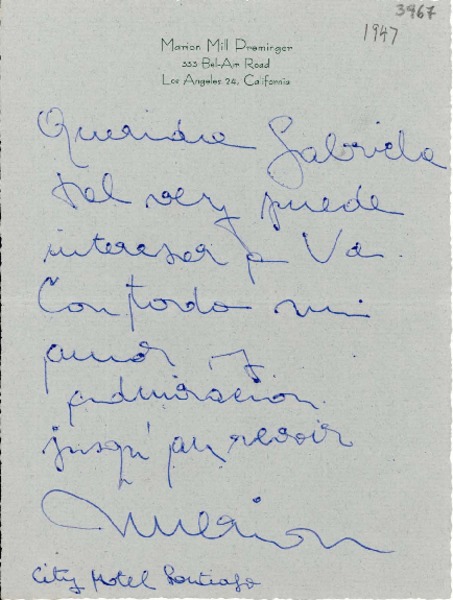 3967
1947
Marion Mill Preminger
333 Bel-Air Road
Los Angeles 24, California
Querida Gabriela
tal vez puede
interesar a Vd.
Con todo mi
amor y
admiracion.
jusqu'au revoir
Marion
City Hotel Santiago